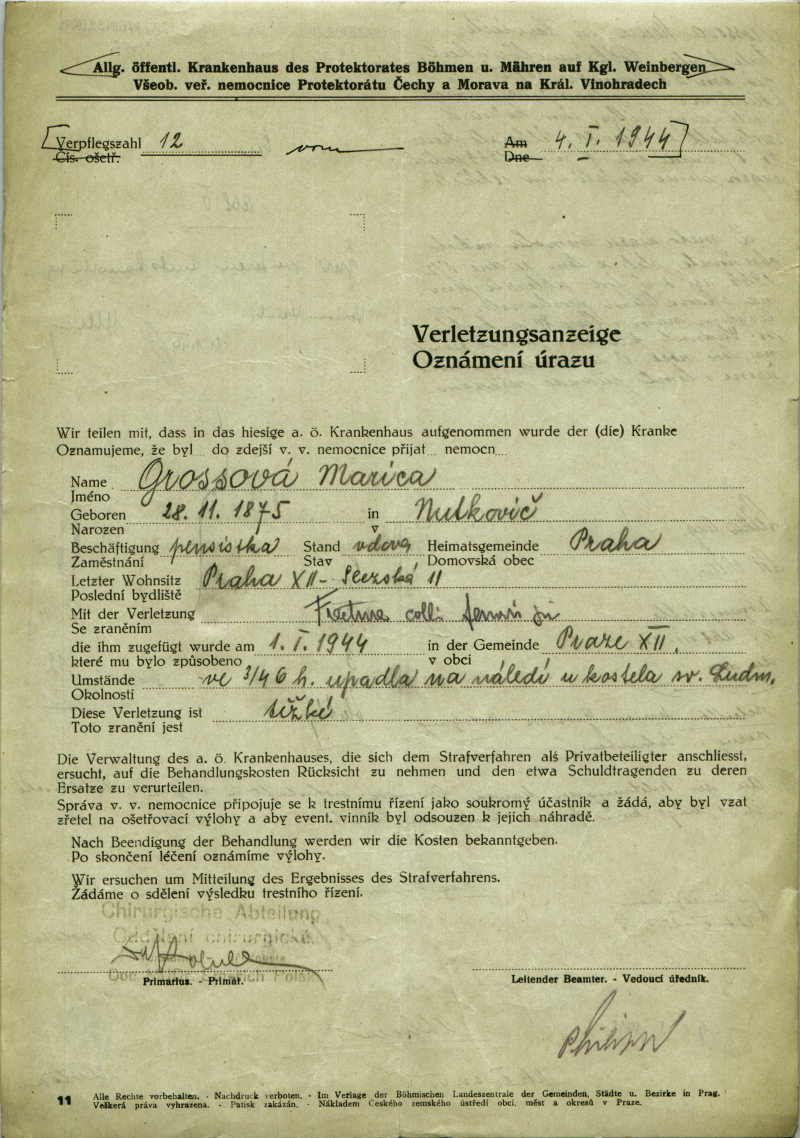 Allg. öffentl. Krankenhaus des Protektorates Böhmen u. Mähren auf Kgl. Weinbergen
Všeob. veř. nemocnice Protektorátu Čechy a Morava na Král. Vinohradech
Verpflegszahl 12 vom Am 4. I. 1944
Čís. ošetř. Dne
Verletzungsanzeige
Oznámení úrazu
Wir teilen mit, dass in das hiesige a. ö. Krankenhaus aufgenommen wurde der (die) Kranke
Oznamujeme, že byl do zdejší v. v. nemocnice přijat nemocn
Name Grossová Marica
Jméno
Geboren 28. 11. 1875 in Nutkovič
Narozen v
Beschäftigung pensistka Stand vdova Heimatsgemeinde Praha
Zaměstnání Stav Domovská obec
Letzter Wohnsitz Praha XII - 11
Poslední bydliště
Mit der Verletzung colli
Se zraněním
die ihm zugefügt wurde am 1. I. 1944 in der Gemeinde Praze XII,
které mu bylo způsobeno v obci
Umstände ve 3/4 6 h. upadla na náledí u kostela sv. Ludm.
Okolnosti
Diese Verletzung ist těžké
Toto zranění jest
Die Verwaltung des a. ö. Krankenhauses, die sich dem Strafverfahren als Privatbeteiligter anschliesst,
ersucht, auf die Behandlungskosten Rücksicht zu nehmen und den etwa Schuldtragenden zu deren
Ersatze zu verurteilen.
Správa v. v. nemocnice připojuje se k trestnímu řízení jako soukromý účastník a žádá, aby byl vzat
zřetel na ošetřovací výlohy a aby event. vinník byl odsouzen k jejich náhradě.
Nach Beendigung der Behandlung werden wir die Kosten bekanntgeben.
Po skončení léčení oznámíme výlohy.
Wir ersuchen um Mitteilung des Ergebnisses des Strafverfahrens.
Žádáme o sdělení výsledku trestního řízení.
Chirurgische Abteilung
Oddělení chirurgické
Primarius. - Primář. Leitender Beamter. - Vedoucí úředník.
11 Alle Rechte vorbehalten. - Nachdruck verboten. - Im Verlage der Böhmischen Landeszentrale der Gemeinden, Städte u. Bezirke in Prag.
Veškerá práva vyhrazena. - Patisk zakázán. - Nákladem Českého zemského ústředí obcí, měst a okresů v Praze.